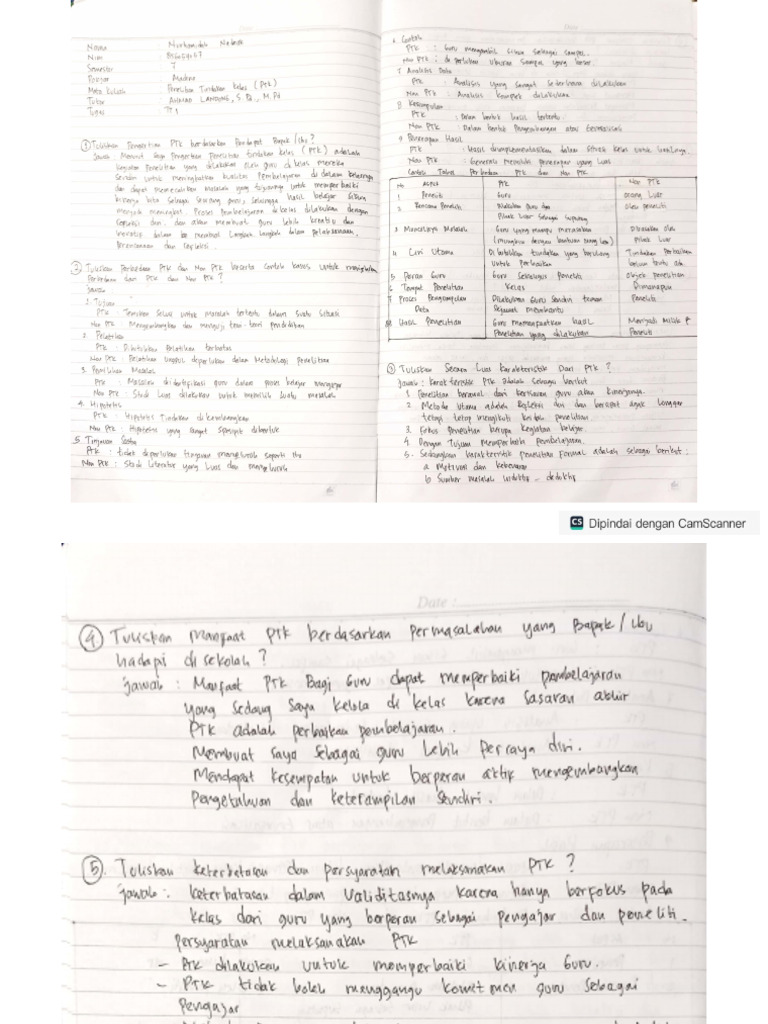 Nama : Nurhamidah
Nim
Semester : 7
Pokjar : Madina
Mata Kuliah : Penelitian Tindakan Kelas (PTK)
Tutor : S.Pd., M.Pd
Tugas : TT 1
① Tuliskan Pengertian PTK berdasarkan Pendapat Bapak/Ibu?
Jawab : Menurut saya Pengertian Penelitian tindakan kelas (PTK) adalah
kegiatan Penelitian yang dilakukan oleh guru di kelas mereka
Sendiri untuk meningkatkan kualitas Pembelajaran di dalam
dan dapat memecahkan Masalah yang tujuannya untuk memperbaiki
kinerja kita sebagai seorang guru, sehingga hasil belajar siswa
menjadi meningkat. Proses Pembelajaran di kelas dilakukan dengan
refleksi diri, dan akan membuat guru lebih kreatif dan
dalam Langkah-Langkah dalam pelaksanaan,
Perencanaan dan Refleksi.
② Tuliskan Perbedaan PTK dan Non PTK beserta contoh kasus untuk
Perbedaan dari PTK dan Non PTK ?
Jawab
1. Tujuan
PTK : Temukan Solusi untuk masalah tertentu dalam Suatu Situasi
Non PTK : Mengembangkan dan menguji teori-teori pendidikan
2. Pelatihan
PTK : Dibutuhkan Pelatihan terbatas
Non PTK : Pelatihan diperlukan dalam Metodologi Penelitian
3. Pemilihan Masalah
PTK : Masalah diidentifikasi guru dalam proses belajar mengajar
Non PTK : Studi Luas dilakukan untuk memilih suatu masalah
4. Hipotesis
PTK : Hipotesis Tindakan dikembangkan
Non PTK : Hipotesis yang sangat spesifik dibentuk
5. Tinjauan Sastra
PTK : tidak diperlukan tinjauan menyeluruh seperti itu
Non PTK : Studi Literatur yang Luas dan menyeluruh
6. Contoh
PTK : Guru mengambil siswa sebagai sampel.
Non PTK : diperlukan Ukuran Sampel yang besar
7. Analisis Data
PTK : Analisis yang sangat sederhana dilakukan
Non PTK : Analisis Kompleks dilakukan
8. Kesimpulan
PTK : Dalam bentuk hasil tertentu
Non PTK : Dalam bentuk Pengembangan atau Generalisasi
9. Penerapan Hasil
PTK : Hasil diimplementasikan dalam situasi kelas untuk
Non PTK : Generalisasi memiliki penerapan yang Luas
Contoh Tabel Perbedaan PTK dan Non PTK
No Aspek PTK Non PTK
1. Peneliti Guru orang Luar
2. Rencana Peneliti oleh guru dan oleh peneliti
Pihak Luar sebagai
3. Munculnya Masalah Guru yang mampu merasakan Dirasakan oleh
(mungkin dengan bantuan orang lain) Pihak luar
4. Ciri Utama Dibutuhkan tindakan yang berulang Tindakan Perbaikan
untuk perbaikan belum tentu ada
5 Peran Guru Guru Sekaligus Peneliti objek penelitian
6 Tempat Penelitian Kelas Dimanapun
7 Proses Pengumpulan Dilakukan Guru Sendiri teman Peneliti
Data Sejawat membantu
8. Hasil Penelitian Guru memanfaatkan hasil Menjadi Milik
Penelitian yang dilakukan Peneliti
③ Tuliskan Secara Luas Karakteristik Dari PTK ?
Jawab : Karakteristik PTK adalah sebagai berikut
1. Penelitian berawal dari kerisauan guru akan kinerjanya.
2. Metode Utama adalah Refleksi diri dan bersifat agak Longgar
tetapi tetap mengikuti kaidah penelitian.
3. Fokus Penelitian berupa kegiatan belajar.
4. Dengan Tujuan Memperbaiki Pembelajaran.
5. Sedangkan karakteristik penelitian Formal adalah sebagai berikut :
a. Motivasi dan kebenaran
b. Sumber masalah induktif - deduktif
CS Dipindai dengan CamScanner
Date :
④ Tuliskan Manfaat PTK berdasarkan Permasalahan yang Bapak/Ibu
hadapi di sekolah ?
Jawab : Manfaat PTK Bagi Guru dapat memperbaiki pembelajaran
yang sedang Saya kelola di kelas karena Sasaran akhir
PTK adalah perbaikan pembelajaran.
Membuat saya sebagai guru Lebih Percaya diri.
Mendapat kesempatan untuk berperan aktif mengembangkan
Pengetahuan dan keterampilan Sendiri.
⑤. Tuliskan keterbatasan dan persyaratan melaksanakan PTK ?
Jawab : keterbatasan dalam Validitasnya karena hanya berfokus pada
kelas dari guru yang berperan sebagai pengajar dan peneliti.
Persyaratan melaksanakan PTK
- PTK dilakukan untuk memperbaiki kinerja Guru.
- PTK tidak boleh mengganggu komitmen guru sebagai
Pengajar